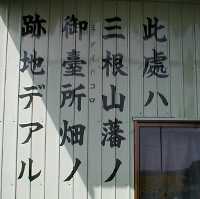 此處ハ
三根山藩ノ
御臺所畑ノ
跡地デアル